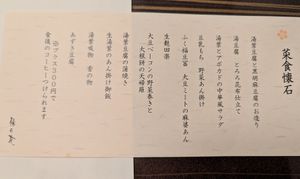 菜食懐石
湯葉豆腐と黒胡麻豆腐のお造り
湯豆腐 とろろ昆布仕立て
湯葉とアボカドの中華風サラダ
豆乳もち 野菜あん掛け
ふく福生富 大豆ミートの麻婆あん
生麩田楽
大豆ベーコンの野菜巻きと
大根餅の天婦羅
湯葉豆腐の蒲焼き
生湯葉のあん掛け御飯
湯葉吸物 香の物
あずき豆腐
プラス300円で
食後のコーヒーつけられます